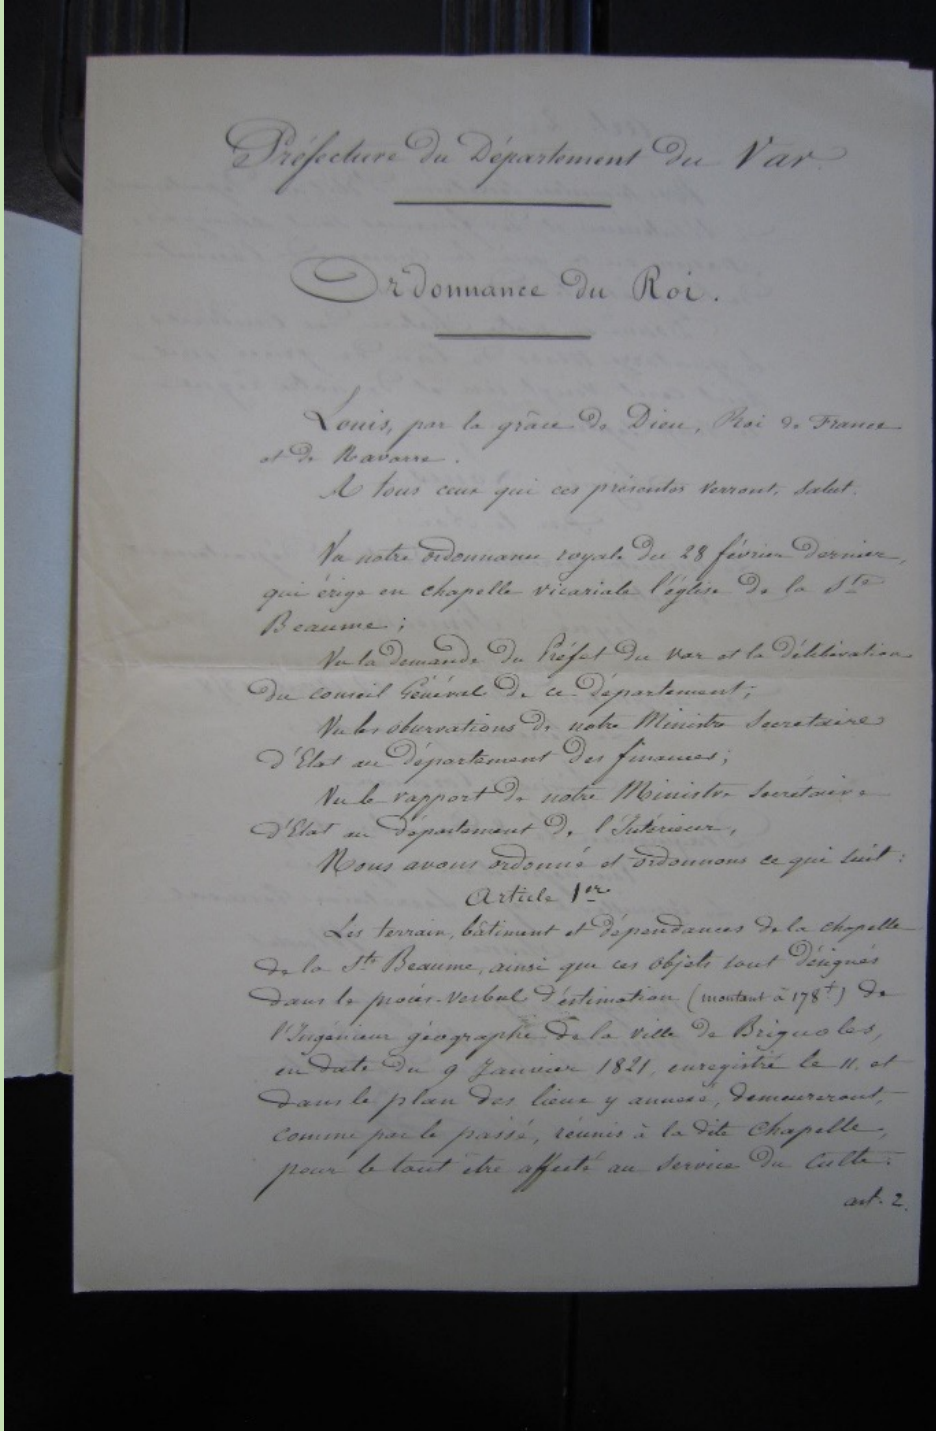 Préfecture du Département du Var.
Ordonnance du Roi.
Louis, par la grâce de Dieu, Roi de France
et de Navarre.
A tous ceux qui ces présentes verront, Salut.
Vu notre ordonnance royale du 28 février dernier,
qui érige en chapelle vicariale l'église de la Ste
Beaume ;
Vu la demande du Préfet du Var et la délibération
du conseil Général de ce département ;
Vu les observations de notre Ministre Secrétaire
d'Etat au département des finances ;
Vu le rapport de notre Ministre Secrétaire
d'Etat au département de l'Intérieur,
Nous avons ordonné et ordonnons ce qui suit :
Article 1er
Les terrain, bâtiment et dépendances de la chapelle
de la Ste Beaume, ainsi que ces objets sont désignés
dans le procès-verbal d'estimation (montant à 178 ₶) de
l'Ingénieur géographe de la ville de Brignoles,
en date du 9 Janvier 1821, enregistré le 11, et
dans le plan des lieux y annexé, demeureront,
comme par le passé, réunis à la dite Chapelle,
pour le tout être affecté au Service du Culte.
art. 2.